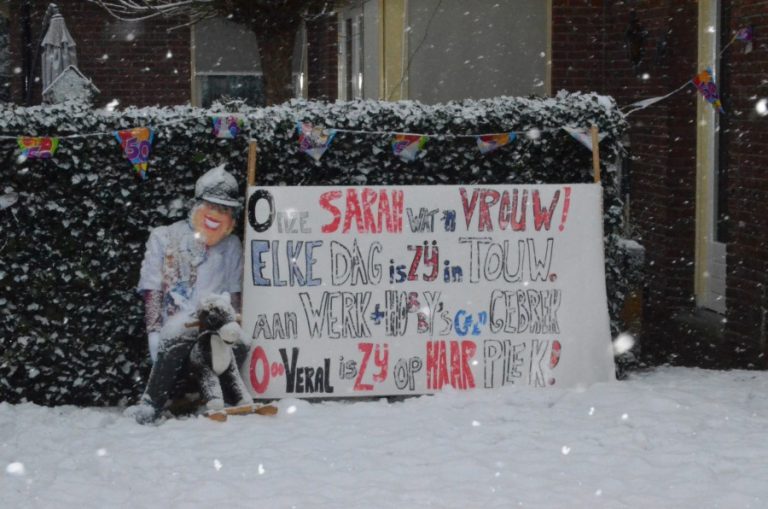 50
ONZE SARAH WAT 'N VROUW!
ELKE DAG is ZIJ in TOUW.
AAN WERK + HOBBY'S GEEN GEBREK
OVERAL is ZIJ OP HAAR PLEK!